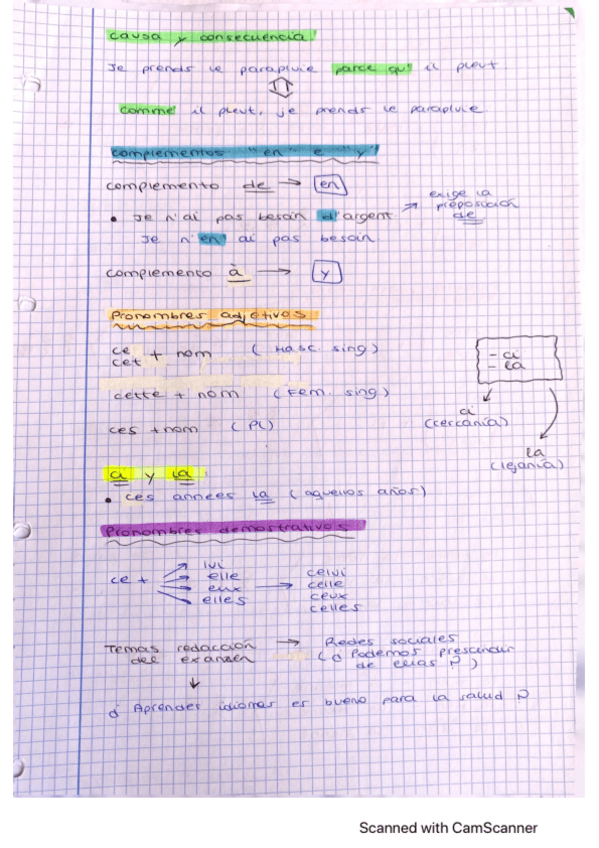 causa y consecuencia
Je prends le parapluie parce qu' il pleut.
comme il pleut, je prends le parapluie.
complementos "en" e "y"
complemento de → en
• Je n'ai pas besoin d'argent → exige la preposición de
Je n'en ai pas besoin
complemento à → y
Pronombres adjetivos
ce
cet + nom ( Masc. sing )
cette + nom ( Fem. sing )
ces + nom ( Pl )
- ci
- la
ci
(cercanía)
la
(lejanía)
ci y la
• ces annees la ( aquellos años )
Pronombres demostrativos
ce + lui
elle
eux
elles
→ celui
celle
ceux
celles
Temas redacción → Redes sociales
del examen ( ¿ Podemos prescindir
de ellas ? )
¿ Aprender idiomas es bueno para la salud ?
Scanned with CamScanner